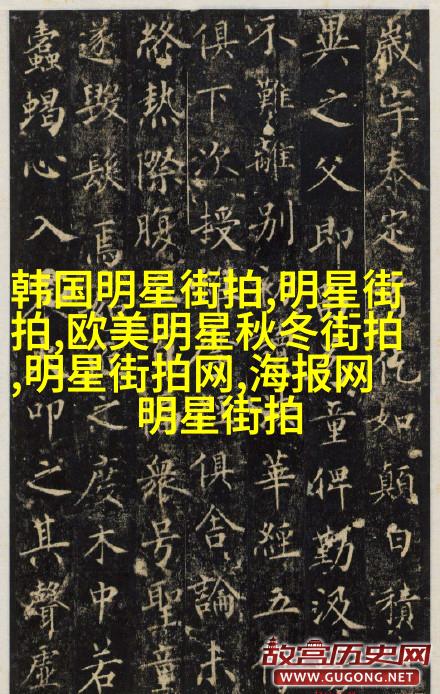 歲字泰定如顛白積
異之父即童稗勤汲
不難離別華經五
俱下次授俱舍論未
終熱際腹衆号聖童
遂毀髮焉之度木中若
蠹蝎心入印之其聲虛
韩国明星街拍,明星街
拍,欧美明星秋冬街拍
,明星街拍网,海报网
明星街拍
故宫历史网
WWW.GUGONG.NET